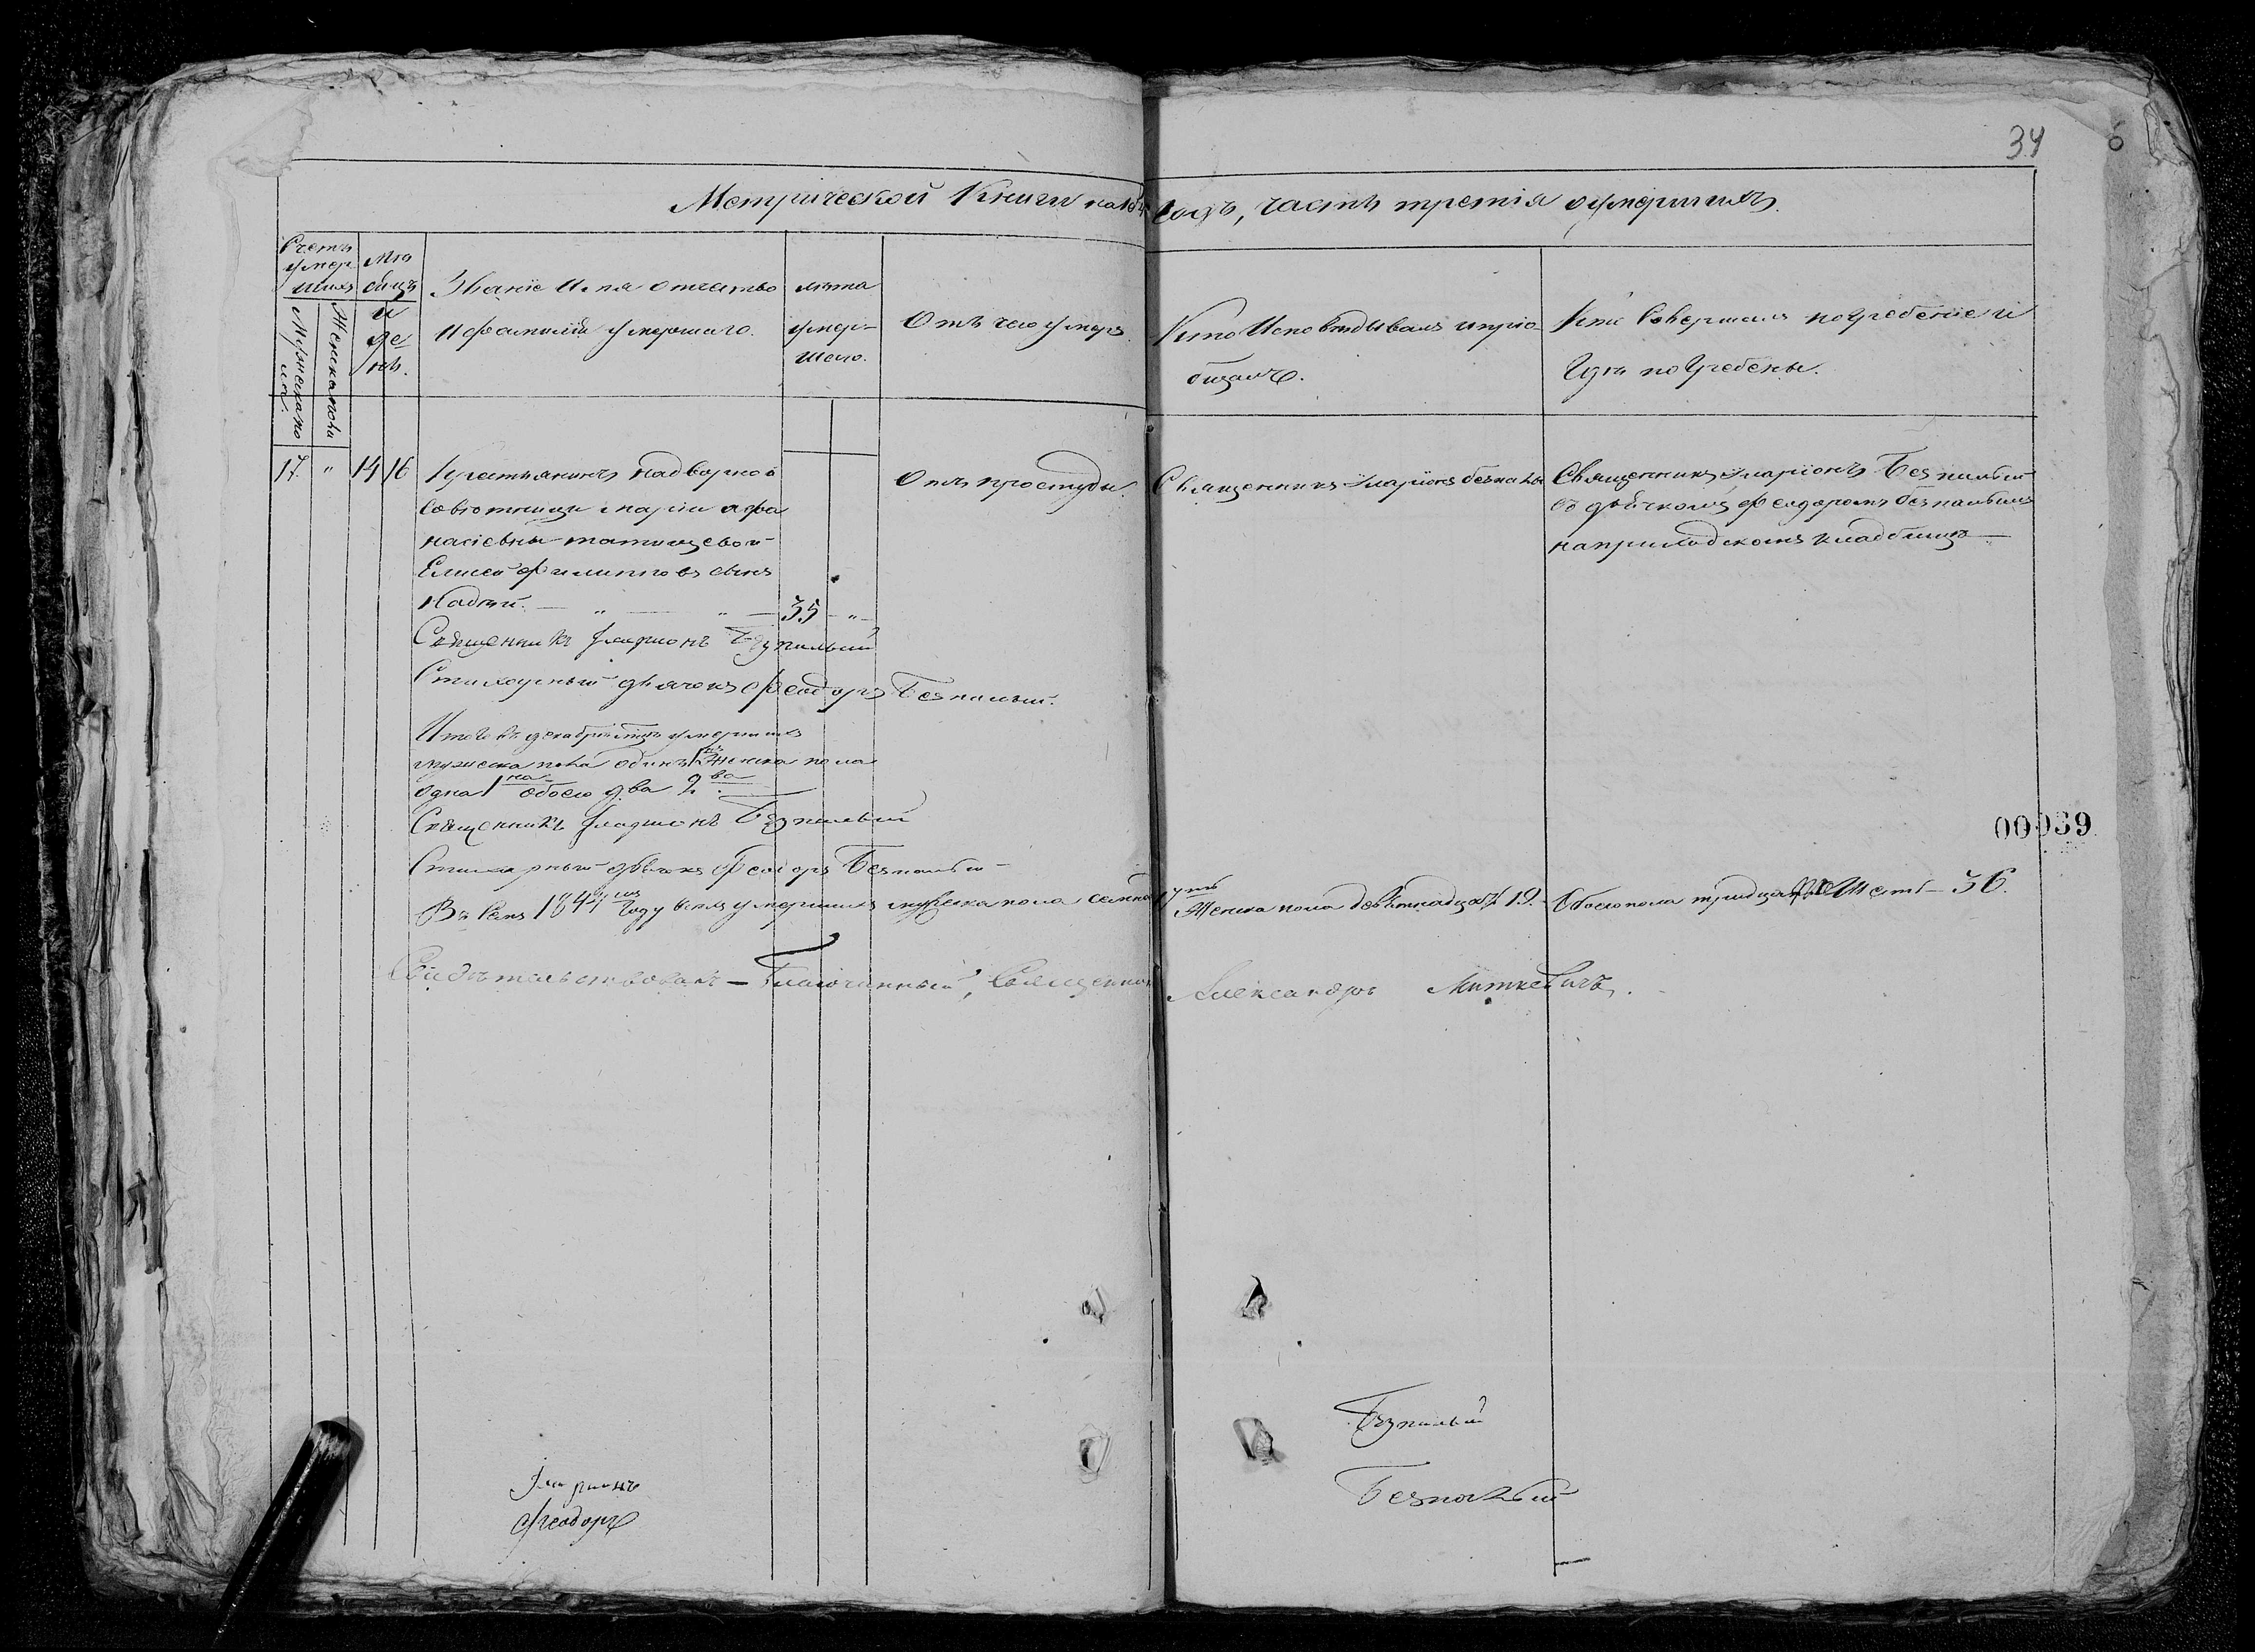 34
6
Метрической Книги на 184 годъ, часть третія о умершихъ.
Счетъ умер шихъ
Мужеска пола
Женска пола
Мѣсяцъ и день.
Званіе Имя отчество
и фамилія умершаго.
лѣта
умер-
шего.
Отъ чего умеръ
Кто Исповѣдывалъ и прио-
бщалъ.
Кто Совершалъ погребеніе и
Гдѣ погребены.
17. " 14 16
Крестьянинъ надворной
совѣтницы Маріи Афа
насіевны татищевой
Елисей Филипповъ сынъ
35 "
Отъ простуды.
Священникъ Иларіонъ
Священникъ Иларіонъ Безпалый
съ дьячкомъ Феодоромъ Безпалымъ
на приходскомъ кладбищѣ
Священникъ Иларионъ Безпалый
Стихарный дьячекъ Феодоръ Безпалый.
Итого въ декабрѣ умершихъ
мужеска пола одинъ 1 Женска пола
одна 1 обоего два 2
Священникъ Иларионъ Безпалый
Стихарный дьячекъ Феодоръ Безпалый
Въ семъ 184 Году всѣхъ умершихъ мужеска пола 17 Женска пола девятнадцать 19. Обоего пола тридцать шесть 36.
00039
Свидѣтельствовалъ – Благочинный, Священникъ Александръ Миткевичъ.
Безпалый
Безпалый
Иларионъ
Феодоръ